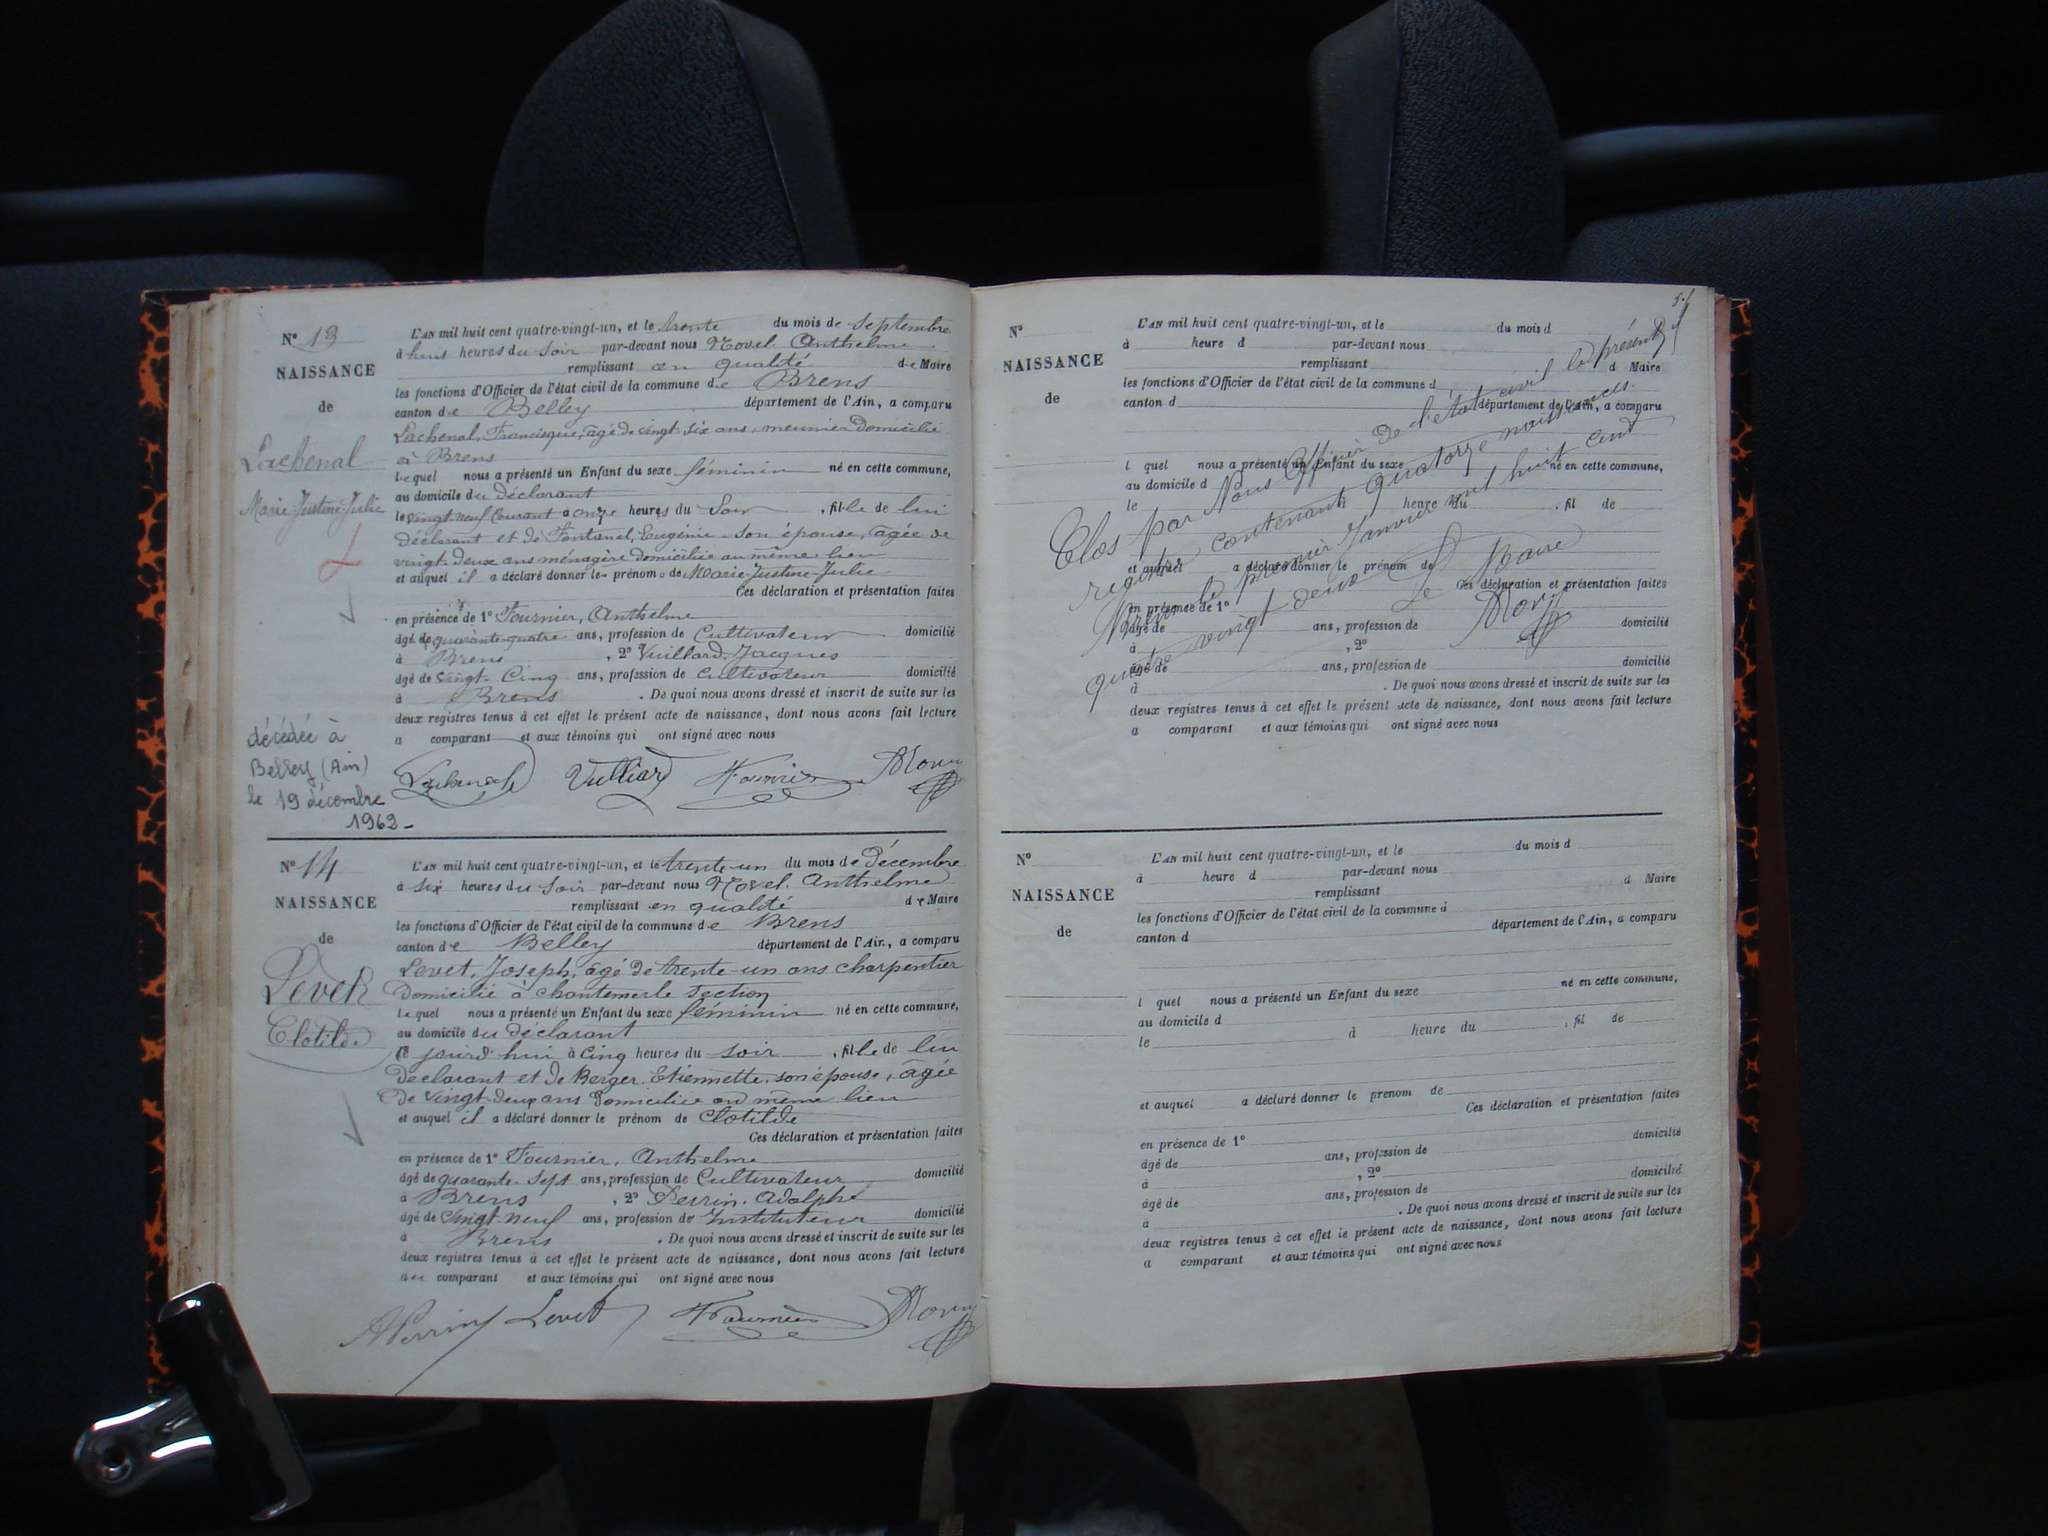 N° 13
NAISSANCE
de
Lachenal
Marie-Justine-Julie
décédée à
Belley (Ain)
le 19 décembre
1962-
L'AN mil huit cent quatre-vingt-un, et le trente du mois de septembre
à huit heures du soir par-devant nous Novel Anthelme
remplissant en qualité de Maire
les fonctions d'Officier de l'état civil de la commune de Brens
canton de Belley département de l'Ain, a comparu
Lachenal, Francisque, âgé de vingt-six ans, meunier domicilié
à Brens
lequel nous a présenté un Enfant du sexe féminin né en cette commune,
au domicile du déclarant
le vingt-neuf courant à onze heures du soir, fille de lui
déclarant et de Fontanel, Eugénie son épouse, âgée de
vingt-deux ans ménagère domiciliée au même lieu
et auquel il a déclaré donner les prénoms de Marie-Justine-Julie
Ces déclaration et présentation faites
en présence de 1° Fournier, Anthelme
âgé de quarante-quatre ans, profession de Cultivateur domicilié
à Brens, 2° Vuillard, Jacques
âgé de vingt-cinq ans, profession de cultivateur domicilié
à Brens. De quoi nous avons dressé et inscrit de suite sur les
deux registres tenus à cet effet le présent acte de naissance, dont nous avons fait lecture
a comparant et aux témoins qui ont signé avec nous
Lachenal Vulliard Fournier Novel
N° 14
NAISSANCE
de
Levet
Clotilde
L'AN mil huit cent quatre-vingt-un, et le trente-un du mois de Décembre
à six heures du soir par-devant nous Novel. Anthelme
remplissant en qualité de Maire
les fonctions d'Officier de l'état civil de la commune de Brens
canton de Belley département de l'Ain, a comparu
Levet, Joseph, âgé de trente-un ans charpentier
domicilié à chantemerle section
lequel nous a présenté un Enfant du sexe féminin né en cette commune,
au domicile du déclarant
ce jourd'hui à cinq heures du soir, fille de lui
déclarant et de Berger. Etiennette. son épouse, âgée
de vingt-deux ans domiciliée au même lieu
et auquel il a déclaré donner le prénom de Clotilde
Ces déclaration et présentation faites
en présence de 1° Fournier, Anthelme
âgé de quarante-sept ans, profession de Cultivateur domicilié
à Brens, 2° Perrin. Adolphe
âgé de vingt-neuf ans, profession de Instituteur domicilié
à Brens. De quoi nous avons dressé et inscrit de suite sur les
deux registres tenus à cet effet le présent acte de naissance, dont nous avons fait lecture
au comparant et aux témoins qui ont signé avec nous
APerrin Levet Fournier Novel
N°
NAISSANCE
de
L'AN mil huit cent quatre-vingt-un, et le du mois d
à heure d par-devant nous
remplissant d Maire
les fonctions d'Officier de l'état civil de la commune d
canton d département de l'Ain, a comparu
l quel nous a présenté un Enfant du sexe né en cette commune,
au domicile d
le à heure du, fil de
et auquel a déclaré donner le prénom de
Ces déclaration et présentation faites
en présence de 1°
âgé de ans, profession de domicilié
à, 2°
âgé de ans, profession de domicilié
à. De quoi nous avons dressé et inscrit de suite sur les
deux registres tenus à cet effet le présent acte de naissance, dont nous avons fait lecture
a comparant et aux témoins qui ont signé avec nous
Clos par Nous Officier de l'état civil le présent
registre contenant quatorze naissances.
Brens le premier Janvier mil huit cent
quatre vingt deux
Le Maire
Novel
N°
NAISSANCE
de
L'AN mil huit cent quatre-vingt-un, et le du mois d
à heure d par-devant nous
remplissant d Maire
les fonctions d'Officier de l'état civil de la commune d
canton d département de l'Ain, a comparu
l quel nous a présenté un Enfant du sexe né en cette commune,
au domicile d
le à heure du, fil de
et auquel a déclaré donner le prenom de
Ces déclaration et présentation faites
en présence de 1°
âgé de ans, profession de domicilié
à, 2°
âgé de ans, profession de domicilié
à. De quoi nous avons dressé et inscrit de suite sur les
deux registres tenus à cet effet le présent acte de naissance, dont nous avons fait lecture
a comparant et aux témoins qui ont signé avec nous